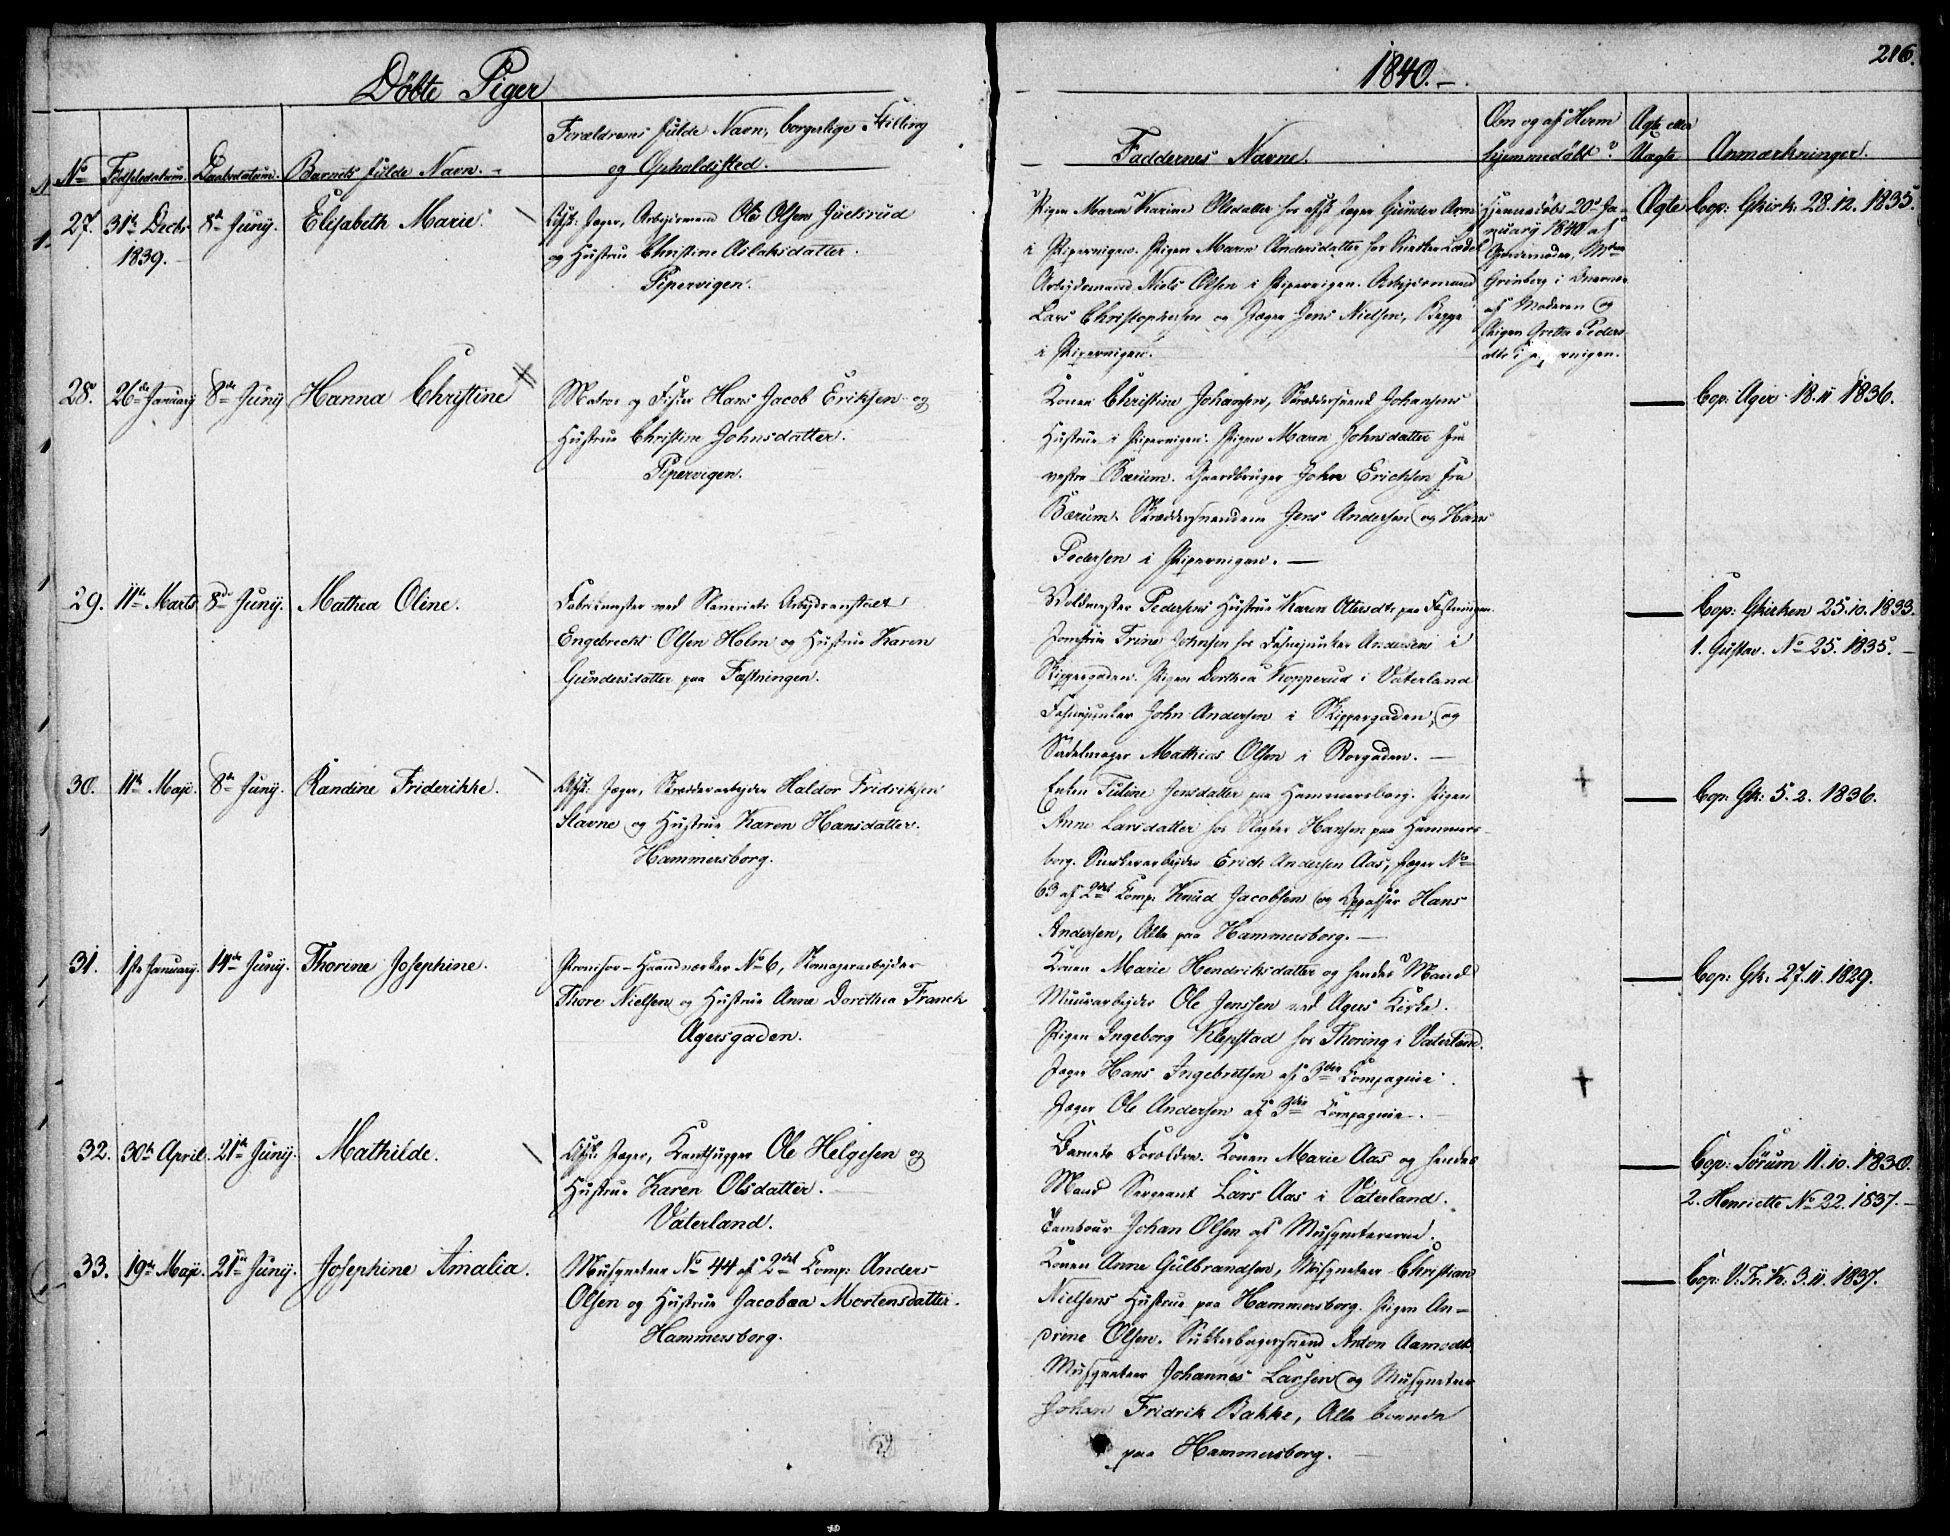 216.
Døbte Piger
1840.-
No Fødselsdatum. Daabsdatum. Barnets fulde Navn.
Forældrenes fulde Navn, borgerlige Stilling
og Opholdssted.
Faddernes Navne.
Om og af Hvem
hjemmedøbt?
Ægte eller
Uægte
Anmærkninger.
27. 31te Decbr 8de Junij. Elisabeth Marie.
1839.
Afsk: Jæger, Arbeidsmand Ole Olsen Juelsrud
og Hustrue Christine Aslaksdatter.
Pipervigen.
Pigen Maren Karine Olsdatter hos afsk Jæger Gunder Arne
i Pipervigen. Pigen Maren Andersdatter hos
Arbeidsmand Niels Olsen i Pipervigen. Arbeidsmand
Lars Christophersen og Jæger Jens Nielsen, Begge
i Pipervigen.
Hjemmedøbt 20de Ja-
nuarij 1840 af
Gjordemoder, Md
Grønberg i
af Moderen og
Pigen Grethe Peders
Ægte
Cop: Gkirk. 28.12.1835.
28. 26de Januarij 8de Junij Hanna Christine
Matros og Fisker Hans Jacob Eriksen og
Hustrue Christine Johnsdatter.
Pipervigen.
Konen Christine Johansen, Skræddersvend Johansens
Hustrue i Pipervigen. Pigen Maren Johnsdatter fra
vestre Bærum. Gaardbruger John Erichsen fra
Bærum. Skræddersvendene Jens Andersen og Hans
Pedersen i Pipervigen. —
—
Cop: Ager 18.11.1836.
29. 11te Marts 8de Junij. Mathea Oline.
Fabrikmester ved Slaveriets Arbeidsanstalt
Engebrecht Olsen Holm og Hustrue Karen
Gundersdatter paa Fæstningen.
Voldmester Pedersens Hustrue Karen Ottersdtr paa Fæstningen.
Jomfrue Trine Johnsen hos Fanejunker Andersen i
Skippergaden. Pigen Dorthea Kopperud i Vaterland
Fanejunker John Andersen i Skippergaden, og
Sadelmager Mathias Olsen i Storgaden. —
—
Cop: Gkirken 25.10.1833.
1. Gustav. No 25. 1835. —
30. 11te Maji. 8de Junij. Randine Friderikke.
Afsk: Jæger, Skrædderarbeider Haldor Fridriksen
Slavne og Hustrue Karen Hansdatter.
Hammersborg.
Enken Tuline Jensdatter paa Hammersborg. Pigen
Anne Larsdatter hos Slagter Hansen paa Hammers-
borg. Snedkerarbeider Erich Andersen Aas, Jæger No
63 af 2det Comp. Knud Jacobsen og Opasser Hans
Andersen, Alle paa Hammersborg. —
—
Cop: Gk: 5.2.1836.
31. 1ste Januarij. 14de Junij. Thorine Josephine.
Provisor-Haandværker No 6, Skomagerarbeider
Thore Nielsen og Hustrue Anne Dorothea Franck
Agersgaden.
Konen Marie Hendriksdatter og hendes Mand
Muurarbeider Ole Jenssen ved Agers Kirke.
Pigen Ingeborg Klepstad hos Thoring i Vaterland.
Jæger Hans Ingebretsen af 3die Compagnie.
Jæger Ole Andersen af 3die Compagnie.
—
Cop: Gk. 27.11.1829.
32. 30te April. 21de Junij. Mathilde.
Afsk: Jæger, Ole Helgesen og
Hustrue Karen Olsdatter.
Vaterland.
Barnets Forældre. Konen Marie Aas og hendes
Mand Sergeant Lars Aas i Vaterland.
Tambour Johan Olsen af Musqueterene.
—
Cop: Sørum 11.10.1830.
2. Henriette No 22. 1837. —
33. 19de Maji. 21de Junij. Josephine Amalia.
Musqueteer No 44 af 2det Comp: Anders
Olsen og Hustrue Jacobæa Mortensdatter.
Hammersborg.
Konen Anne Gulbrandsen, Musqueteer Christian
Nielsens Hustrue paa Hammersborg. Pigen An-
drine Olsen. Sukkerbagersvend Anton Aamodt.
Musqueteer Johannes Larsen og Musqueteer
Johan Fridrik Bakke, Alle boende
paa Hammersborg. —
—
Cop: V. Fr. K. 3.11.1837.